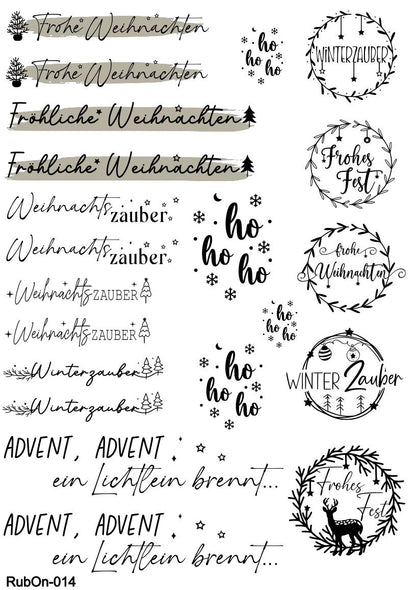 Frohe Weihnachten
Frohe Weihnachten
Fröhliche Weihnachten
Fröhliche Weihnachten
Weihnachts
zauber
Weihnachts
zauber
Weihnachts ZAUBER
Weihnachts ZAUBER
Winterzauber
Winterzauber
ADVENT, ADVENT
ein Lichtlein brennt...
ADVENT, ADVENT
ein Lichtlein brennt...
ho
ho
ho
ho
ho
ho
ho
ho
ho
ho
ho
ho
WINTERZAUBER
Frohes
Fest
frohe
Weihnachten
WINTER Zauber
Frohes
Fest
RubOn-014